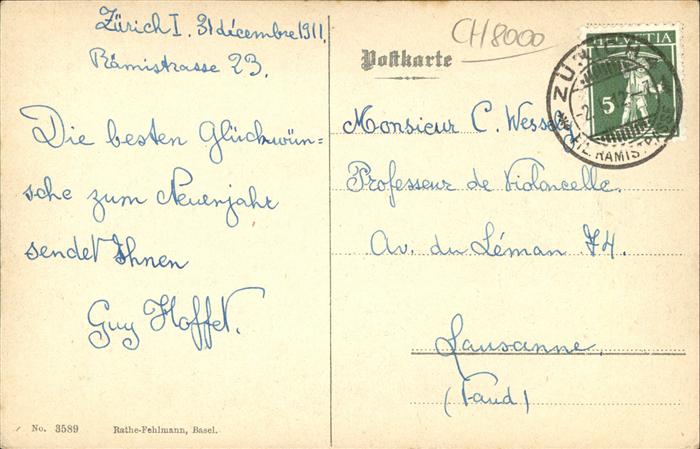 Zürich I. 31 décembre 1911.
Rämistrasse 23.
Die besten Glückwün-
sche zum Neuenjahr
sendet Ihnen
Guy Hoffet.
CH 8000
Postkarte
HELVETIA
5
ZÜRICH
FIL. RÄMISTRASSE
Monsieur C. Wessely
Professeur de Violoncelle.
Av. du Léman 74.
Lausanne.
(Vaud)
No. 3589 Rathe-Fehlmann, Basel.